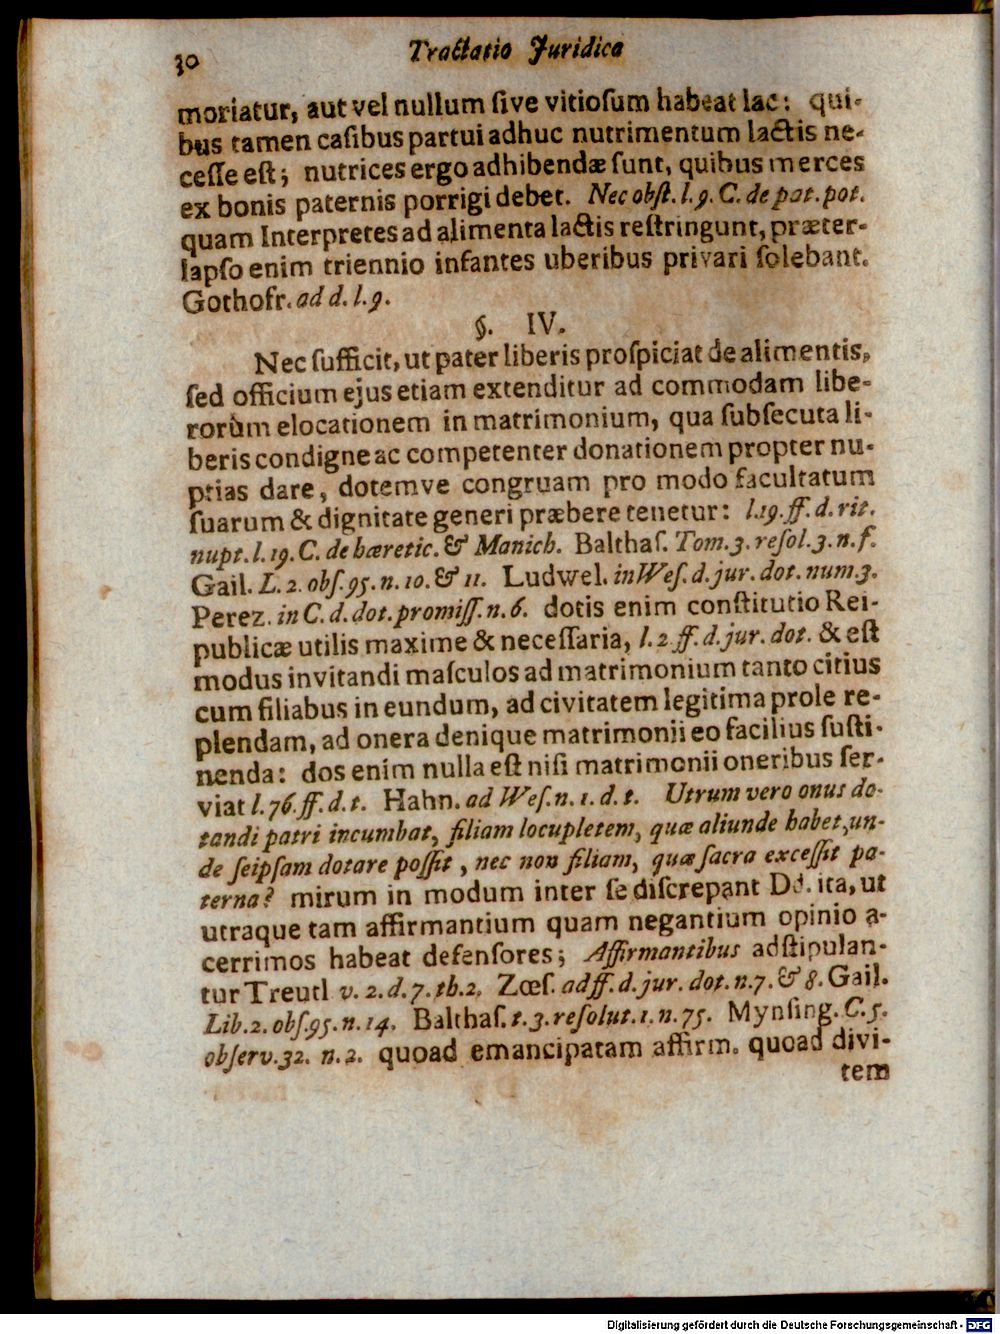 30 Tractatio Juridica
moriatur, aut vel nullum ſive vitioſum habeat lac: qui-
bus tamen caſibus partui adhuc nutrimentum lactis ne-
ceſſe eſt; nutrices ergo adhibendæ ſunt, quibus merces
ex bonis paternis porrigi debet. Nec obſt. l. 9. C. de pat. pot.
quam Interpretes ad alimenta lactis reſtringunt, præter-
lapſo enim triennio infantes uberibus privari ſolebant.
Gothofr. ad d. l. 9.
§. IV.
Nec ſufficit, ut pater liberis proſpiciat de alimentis,
ſed officium ejus etiam extenditur ad commodam libe-
rorùm elocationem in matrimonium, qua ſubſecuta li-
beris condigne ac competenter donationem propter nu-
ptias dare, dotemve congruam pro modo facultatum
ſuarum & dignitate generi præbere tenetur: l. 19. ff. d. rit.
nupt. l. 19. C. de hæretic. & Manich. Balthaſ. Tom. 3. reſol. 3. n. f.
Gail. L. 2. obſ. 95. n. 10. & 11. Ludwel. in Weſ. d. jur. dot. num. 3.
Perez. in C. d. dot. promiſſ. n. 6. dotis enim conſtitutio Rei-
publicæ utilis maxime & neceſſaria, l. 2 ff. d. jur. dot. & eſt
modus invitandi maſculos ad matrimonium tanto citius
cum filiabus in eundum, ad civitatem legitima prole re-
plendam, ad onera denique matrimonii eo facilius ſuſti-
nenda: dos enim nulla eſt niſi matrimonii oneribus ſer-
viat l. 76. ff. d. t. Hahn. ad Weſ. n. 1. d. t. Utrum vero onus do-
tandi patri incumbat, filiam locupletem, quæ aliunde habet, un-
de ſeipſam dotare poſſit, nec non filiam, quæ ſacra exceſſit pa-
terna? mirum in modum inter ſe diſcrepant Dd. ita, ut
utraque tam affirmantium quam negantium opinio a-
cerrimos habeat defenſores; Affirmantibus adſtipulan-
tur Treutl v. 2. d. 7. th. 2. Zœſ. ad ff. d. jur. dot. n. 7. & 8. Gail.
Lib. 2. obſ. 95. n. 14. Balthaſ. t. 3. reſolut. 1. n. 75. Mynſing. C. 5.
obſerv. 32. n. 2. quoad emancipatam affirm. quoad divi-
tem
Digitalisierung gefördert durch die Deutsche Forschungsgemeinschaft - DFG